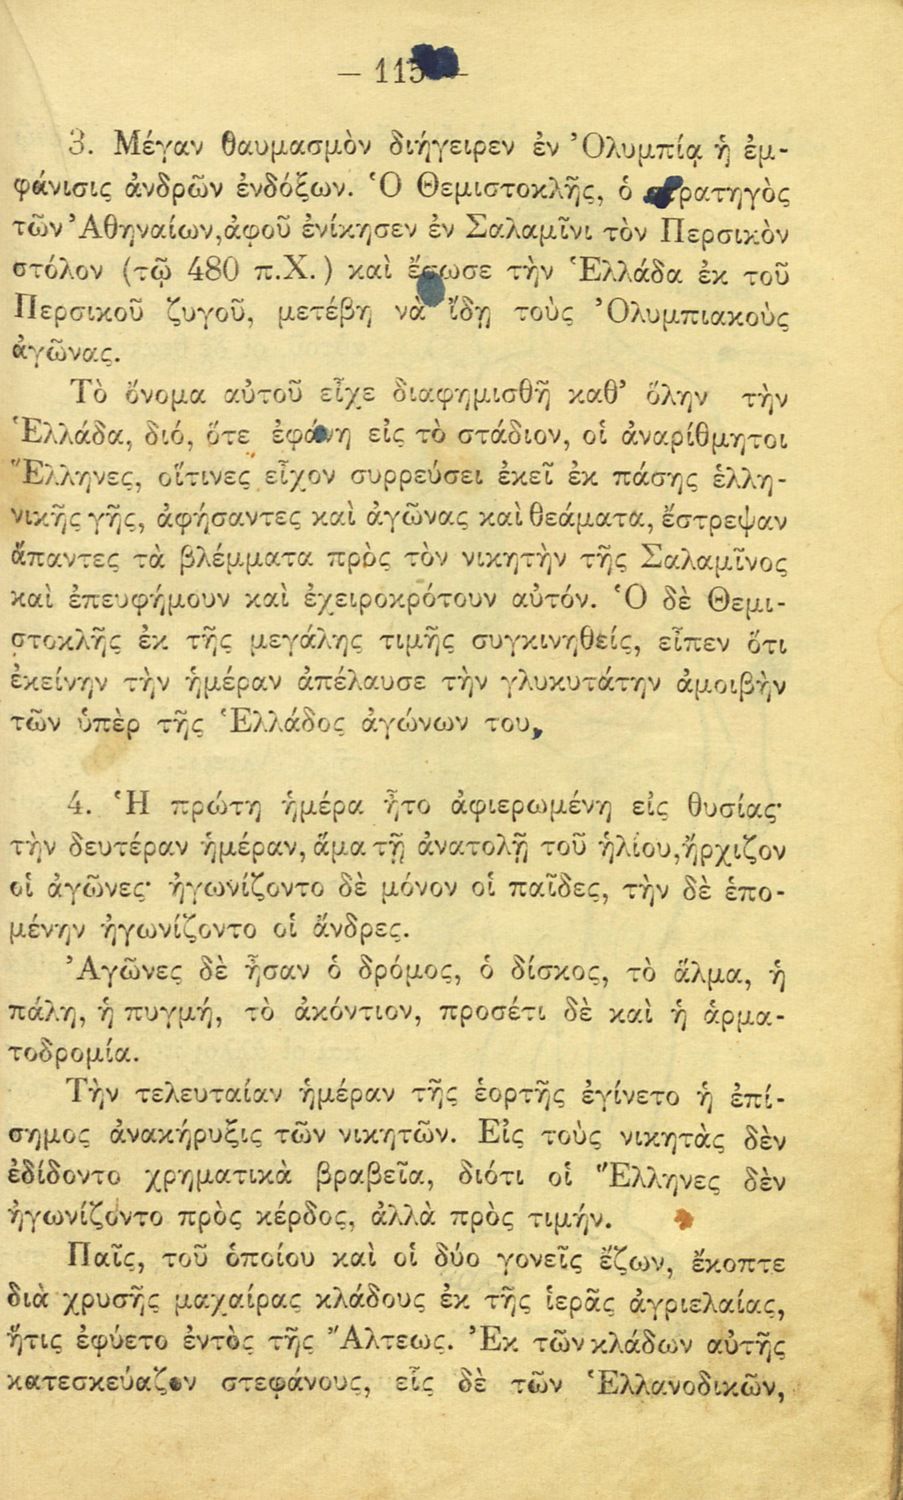 – 115 –
3. Μέγαν θαυμασμὸν διήγειρεν ἐν Ὀλυμπίᾳ ἡ ἐμ-
φάνισις ἀνδρῶν ἐνδόξων. Ὁ Θεμιστοκλῆς, ὁ στρατηγὸς
τῶν Ἀθηναίων, ἀφοῦ ἐνίκησεν ἐν Σαλαμῖνι τὸν Περσικὸν
στόλον (τῷ 480 π.Χ.) καὶ ἔσωσε τὴν Ἑλλάδα ἐκ τοῦ
Περσικοῦ ζυγοῦ, μετέβη νὰ ἴδῃ τοὺς Ὀλυμπιακοὺς
ἀγῶνας.
Τὸ ὄνομα αὐτοῦ εἶχε διαφημισθῆ καθ’ ὅλην τὴν
Ἑλλάδα, διό, ὅτε ἐφάνη εἰς τὸ στάδιον, οἱ ἀναρίθμητοι
Ἕλληνες, οἵτινες εἶχον συρρεύσει ἐκεῖ ἐκ πάσης ἑλλη-
νικῆς γῆς, ἀφήσαντες καὶ ἀγῶνας καὶ θεάματα, ἔστρεψαν
ἅπαντες τὰ βλέμματα πρὸς τὸν νικητὴν τῆς Σαλαμῖνος
καὶ ἐπευφήμουν καὶ ἐχειροκρότουν αὐτόν. Ὁ δὲ Θεμι-
στοκλῆς ἐκ τῆς μεγάλης τιμῆς συγκινηθείς, εἶπεν ὅτι
ἐκείνην τὴν ἡμέραν ἀπέλαυσε τὴν γλυκυτάτην ἀμοιβὴν
τῶν ὑπὲρ τῆς Ἑλλάδος ἀγώνων του,
4. Ἡ πρώτη ἡμέρα ἦτο ἀφιερωμένη εἰς θυσίας·
τὴν δευτέραν ἡμέραν, ἅμα τῇ ἀνατολῇ τοῦ ἡλίου, ἤρχιζον
οἱ ἀγῶνες· ἠγωνίζοντο δὲ μόνον οἱ παῖδες, τὴν δὲ ἑπο-
μένην ἠγωνίζοντο οἱ ἄνδρες.
Ἀγῶνες δὲ ἦσαν ὁ δρόμος, ὁ δίσκος, τὸ ἅλμα, ἡ
πάλη, ἡ πυγμή, τὸ ἀκόντιον, προσέτι δὲ καὶ ἡ ἁρμα-
τοδρομία.
Τὴν τελευταίαν ἡμέραν τῆς ἑορτῆς ἐγίνετο ἡ ἐπί-
σημος ἀνακήρυξις τῶν νικητῶν. Εἰς τοὺς νικητὰς δὲν
ἐδίδοντο χρηματικὰ βραβεῖα, διότι οἱ Ἕλληνες δὲν
ἠγωνίζοντο πρὸς κέρδος, ἀλλὰ πρὸς τιμήν.
Παῖς, τοῦ ὁποίου καὶ οἱ δύο γονεῖς ἔζων, ἔκοπτε
διὰ χρυσῆς μαχαίρας κλάδους ἐκ τῆς ἱερᾶς ἀγριελαίας,
ἥτις ἐφύετο ἐντὸς τῆς Ἄλτεως. Ἐκ τῶν κλάδων αὐτῆς
κατεσκεύαζον στεφάνους, εἷς δὲ τῶν Ἑλλανοδικῶν,